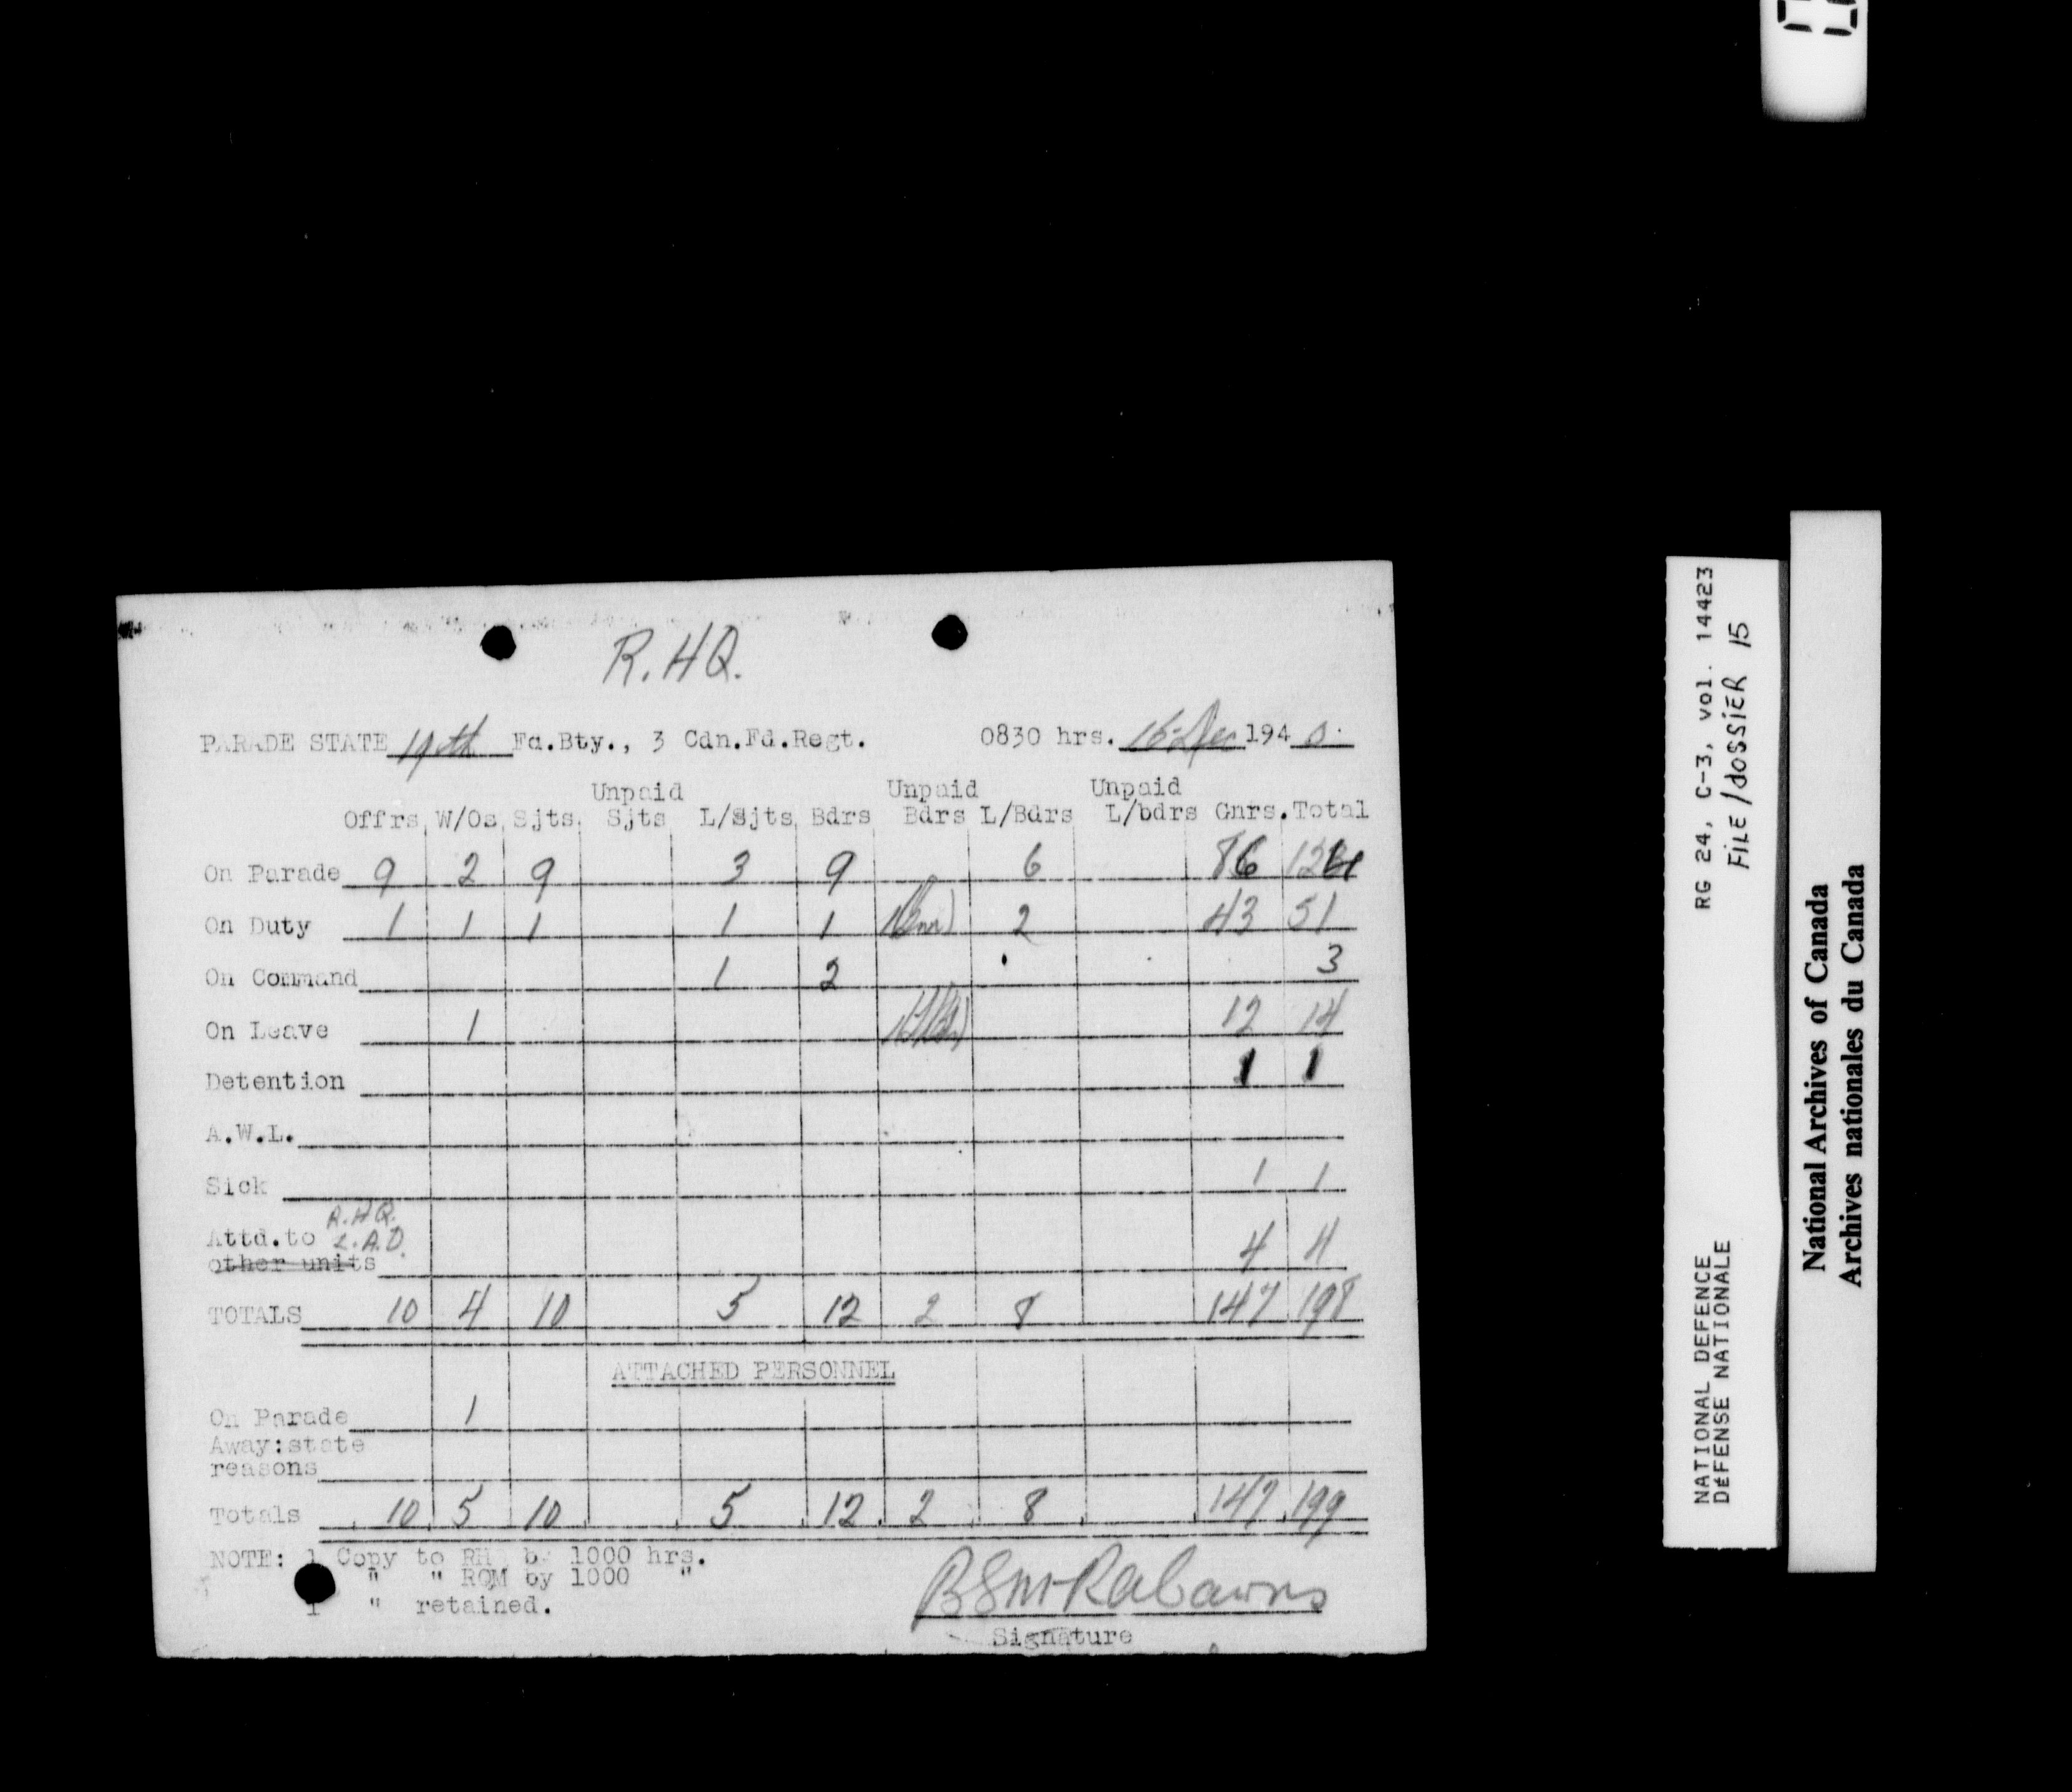 R.HQ.
PARADE STATE 19th Fd.Bty., 3 Cdn.Fd.Regt. 0830 hrs. 15-Dec 1940.
Unpaid Unpaid Unpaid
Offrs W/Os Sjts. Sjts L/Sjts Bdrs Bdrs L/Bdrs L/bdrs Gnrs. Total
On Parade 9 2 9 3 9 6 86 124
On Duty 1 1 1 1 1 1 2 43 51
On Command 1 2 3
On Leave 1 1 12 14
Detention 1 1
A.W.L.
Sick 1 1
R.H.Q.
Attd.to L.A.D. 4 4
other units
TOTALS 10 4 10 5 12 2 8 147 198
ATTACHED PERSONNEL
On Parade 1
Away:state
reasons
Totals 10 5 10 5 12 2 8 147 199
NOTE: 1 Copy to RH by 1000 hrs.
" " RQM by 1000 "
1 " retained.
BSM
Signature
RG 24, C-3, vol. 14423
FILE/dOSSiER 15
NATIONAL DEFENCE
DéFENSE NATIONALE
National Archives of Canada
Archives nationales du Canada